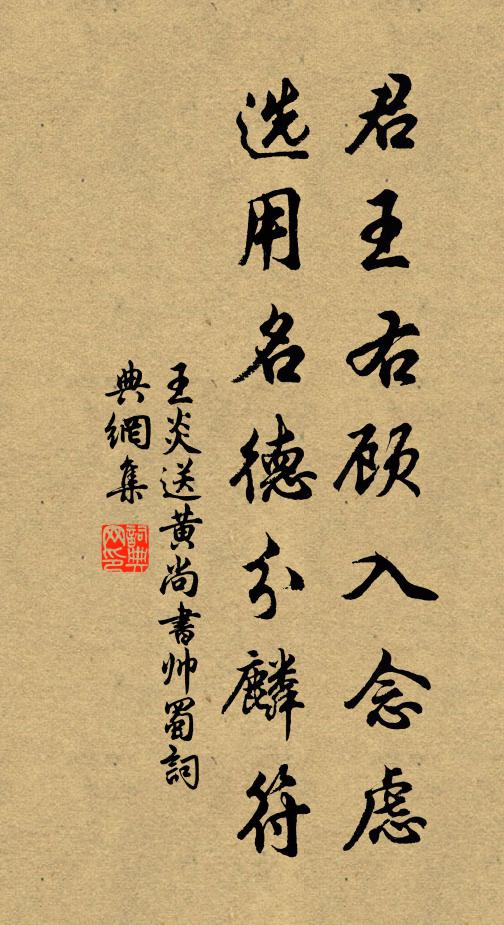 君王右顾入念虑
选用名德分麟符
王炎送黄尚書帅蜀詞
典網集
詞典网印